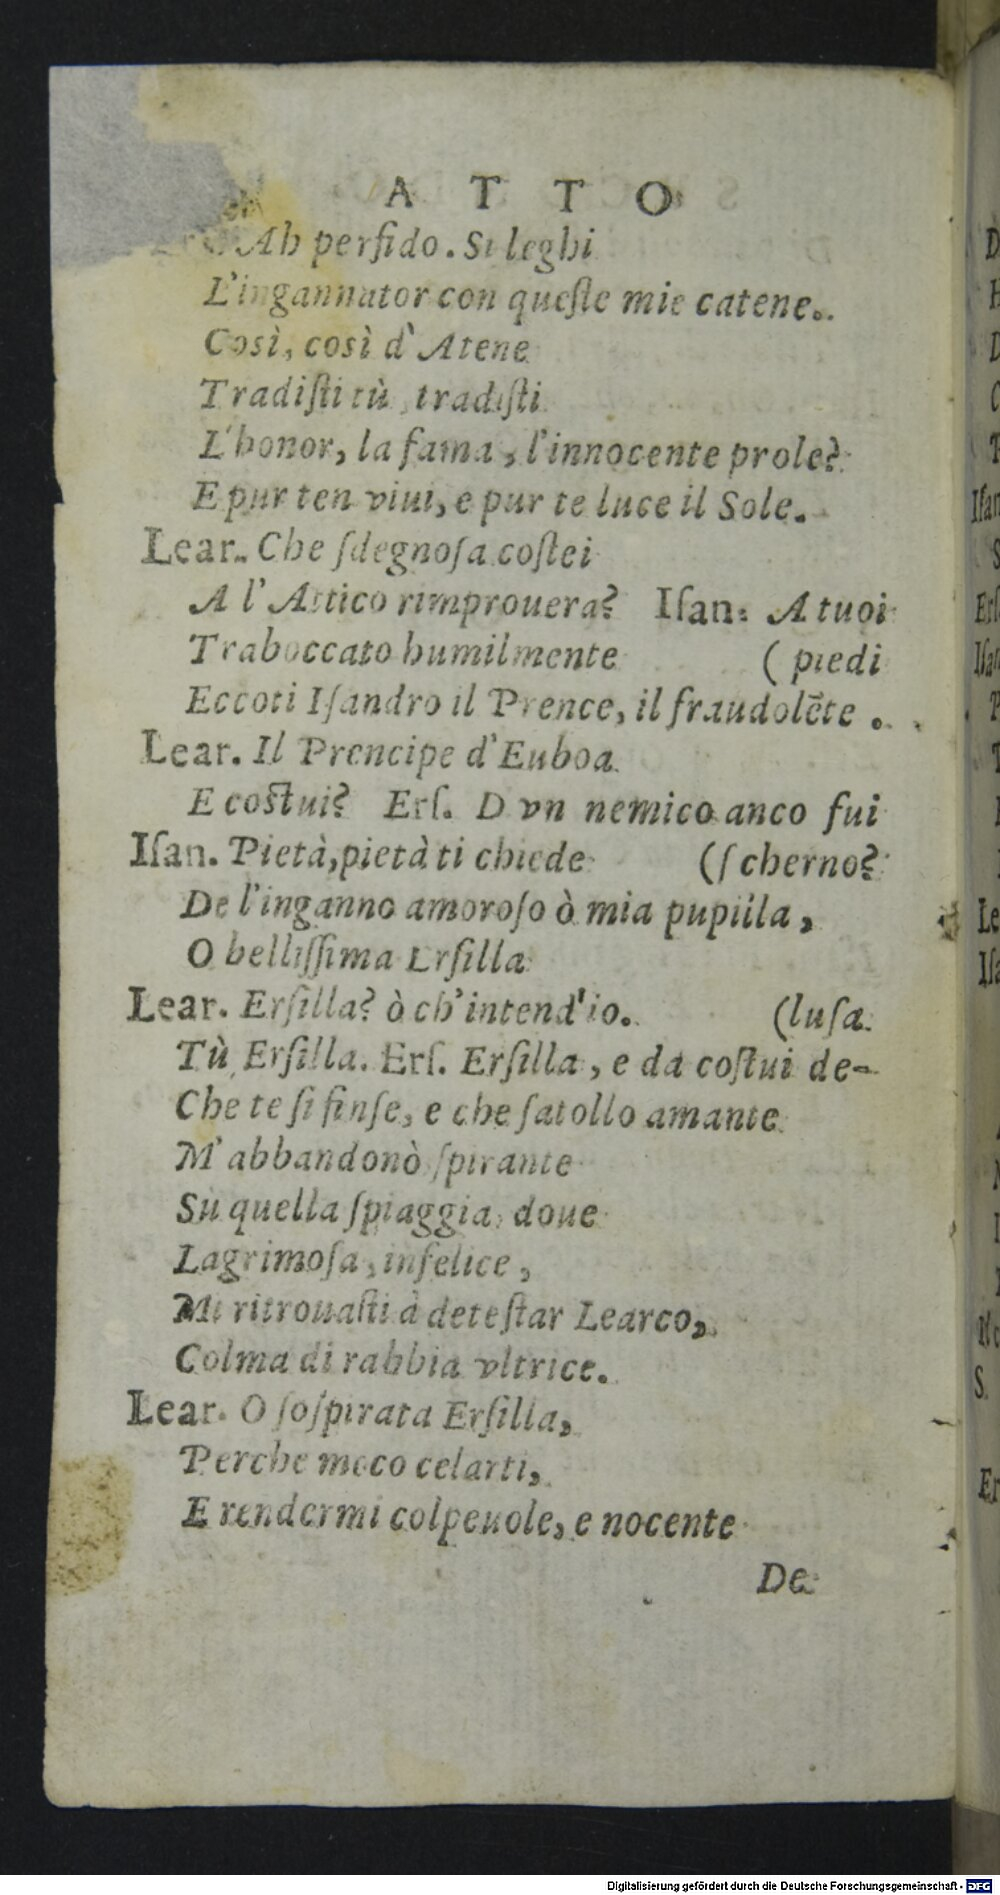 ATTO
Ah perfido. Si leghi
L'ingannator con queſte mie catene.
Così, così d'Atene
Tradiſti tù, tradiſti
L'honor, la fama, l'innocente prole?
E pur ten viui, e pur te luce il Sole.
Lear. Che ſdegnoſa coſtei
A l'Attico rimprouera? Iſan. A tuoi
Traboccato humilmente (piedi
Eccoti Iſandro il Prence, il fraudolẽte.
Lear. Il Prencipe d'Euboa
E coſtui? Erſ. D vn nemico anco fui
Iſan. Pietà, pietà ti chiede (ſcherno?
De l'inganno amoroſo ò mia pupilla,
O belliſſima Erſilla
Lear. Erſilla? ò ch'intend'io. (luſa.
Tù Erſilla. Erſ. Erſilla, e da coſtui de-
Che te ſi finſe, e che ſatollo amante
M'abbandonò ſpirante
Sù quella ſpiaggia, doue
Lagrimoſa, infelice,
Mi ritrouaſti à deteſtar Learco,
Colma di rabbia vltrice.
Lear. O ſoſpirata Erſilla,
Perche meco celarti,
E rendermi colpeuole, e nocente
De
Iſan
Erſ
Iſan
Le
Iſa
S.
Er
Digitalisierung gefördert durch die Deutsche Forschungsgemeinschaft - DFG